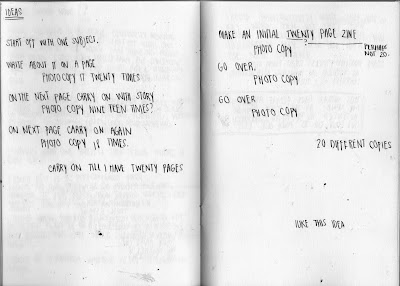 IDEAS
START OFF WITH ONE SUBJECT.
WRITE ABOUT IT ON A PAGE
PHOTOCOPY IT TWENTY TIMES
ON THE NEXT PAGE CARRY ON WITH STORY
PHOTO COPY NINE TEEN TIMES?
ON NEXT PAGE CARRY ON AGAIN
PHOTO COPY 18 TIMES.
CARRY ON TILL I HAVE TWENTY PAGES
MAKE AN INITIAL TWENTY PAGE ZINE
?
PERHAPS
NOT 20.
PHOTO COPY
GO OVER.
PHOTO COPY
GO OVER
PHOTO COPY
20 DIFFERENT COPIES
I LIKE THIS IDEA